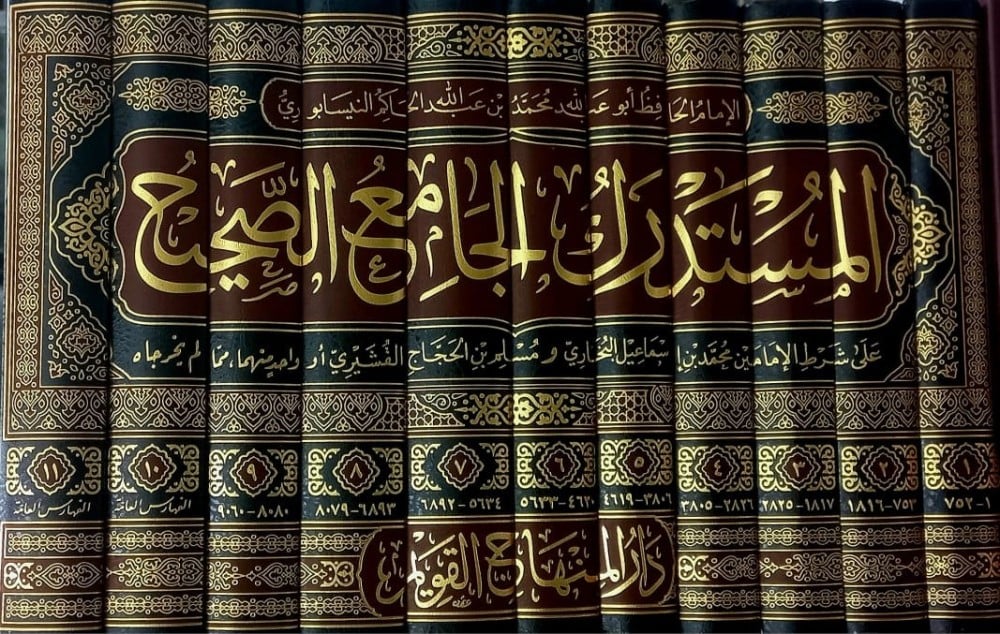 الإمام الحافظ أبو عبد الله محمد بن عبد الله الحاكم النيسابوري
المُسْتَدْرَكُ الجَامِعُ الصَّحِيحُ
على شرط الإمامين محمد بن إسماعيل البخاري ومسلم بن الحجاج القشيري أو واحد منهما، مما لم يخرجاه
١ ٢ ٣ ٤ ٥ ٦ ٧ ٨ ٩ ١٠ ١١
١-٧٥٢ ٧٥٣-١٨١٦ ١٨١٧-٢٨٢٥ ٢٨٢٦-٣٨٠٥ ٣٨٠٦-٤٦١٩ ٤٦٢٠-٥٦٣٣ ٥٦٣٤-٦٨٩٢ ٦٨٩٣-٨٠٧٩ ٨٠٨٠-٩٠٦٠ الفهارس العامة الفهارس العامة
دار المنهاج القويم